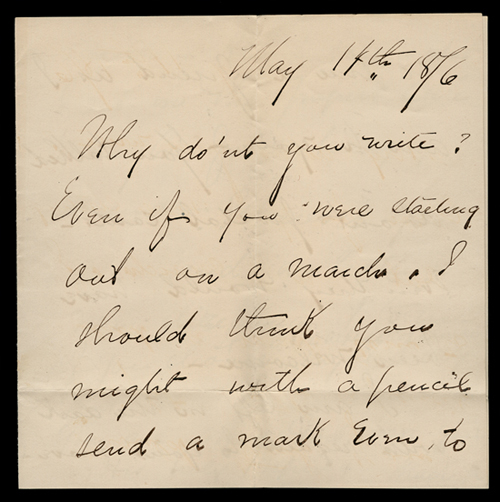 May 14th 1876
Why do'nt you write?
Even if you were starting
out on a march. I
should think you
might with a pencil
send a mark Even, to